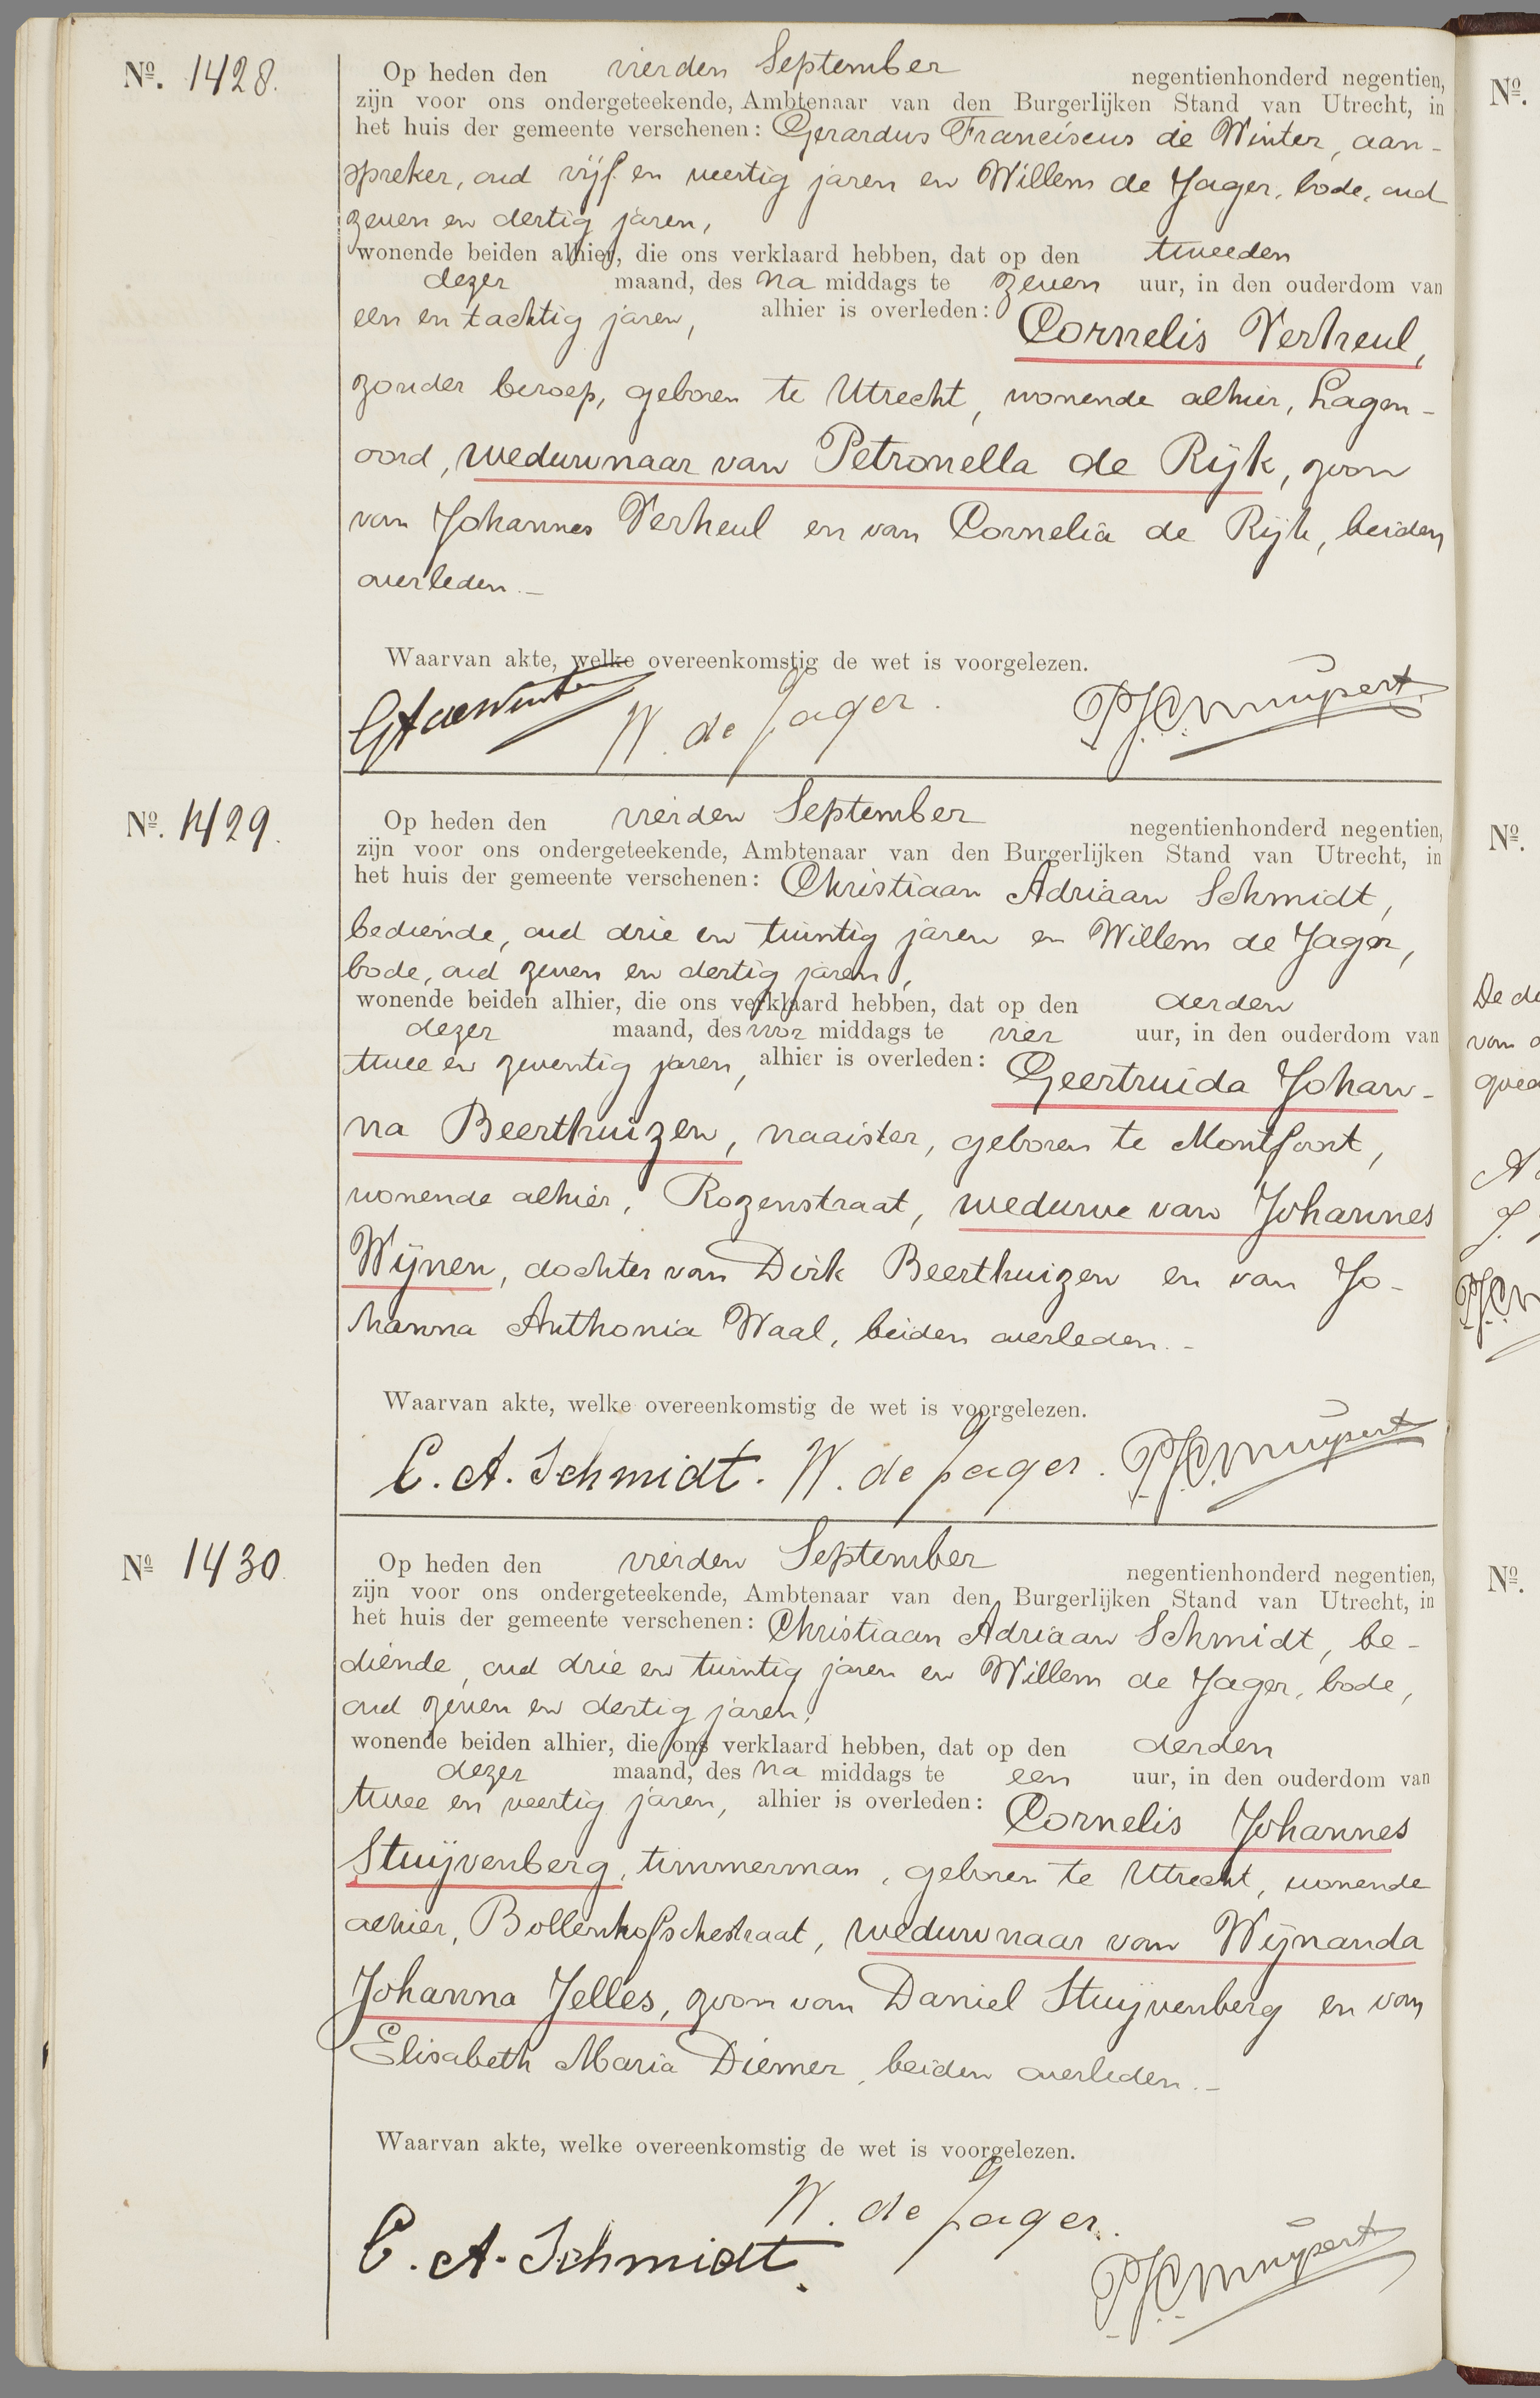 Nº. 1428.
Op heden den vierden September negentienhonderd negentien,
zijn voor ons ondergeteekende, Ambtenaar van den Burgerlijken Stand van Utrecht, in
het huis der gemeente verschenen: Gerardus Franciscus de Winter, aan-
spreker, oud vijf en veertig jaren en Willem de Jager, bode, oud
zeven en dertig jaren,
wonende beiden alhier, die ons verklaard hebben, dat op den tweeden
dezer maand, des na middags te zeven uur, in den ouderdom van
een en tachtig jaren, alhier is overleden: Cornelis Verheul,
zonder beroep, geboren te Utrecht, wonende alhier, Lagen-
oord, weduwnaar van Petronella de Rijk, zoon
van Johannes Verheul en van Cornelia de Rijk, beiden
overleden.-
Waarvan akte, welke overeenkomstig de wet is voorgelezen.
GFdeWinter W. de Jager.
Nº. 1429.
Op heden den vierden September negentienhonderd negentien,
zijn voor ons ondergeteekende, Ambtenaar van den Burgerlijken Stand van Utrecht, in
het huis der gemeente verschenen: Christiaan Adriaan Schmidt,
bediende, oud drie en twintig jaren en Willem de Jager,
bode, oud zeven en dertig jaren,
wonende beiden alhier, die ons verklaard hebben, dat op den derden
dezer maand, des voor middags te vier uur, in den ouderdom van
twee en zeventig jaren, alhier is overleden: Geertruida Johan-
na Beerthuizen, naaister, geboren te Montfoort,
wonende alhier, Rozenstraat, weduwe van Johannes
Wijnen, dochter van Dirk Beerthuizen en van Jo-
hanna Anthonia Waal, beiden overleden.-
Waarvan akte, welke overeenkomstig de wet is voorgelezen.
C. A. Schmidt. W. de Jager.
Nº 1430.
Op heden den vierden September negentienhonderd negentien,
zijn voor ons ondergeteekende, Ambtenaar van den Burgerlijken Stand van Utrecht, in
het huis der gemeente verschenen: Christiaan Adriaan Schmidt, be-
diende, oud drie en twintig jaren en Willem de Jager, bode,
oud zeven en dertig jaren,
wonende beiden alhier, die ons verklaard hebben, dat op den derden
dezer maand, des na middags te een uur, in den ouderdom van
twee en veertig jaren, alhier is overleden: Cornelis Johannes
Stuijvenberg, timmerman, geboren te Utrecht, wonende
alhier, Bollenhofschestraat, weduwnaar van Wijnanda
Johanna Jelles, zoon van Daniel Stuijvenberg en van
Elisabeth Maria Diemer, beiden overleden.-
Waarvan akte, welke overeenkomstig de wet is voorgelezen.
W. de Jager.
C. A. Schmidt.
Nº.
Nº.
Nº.